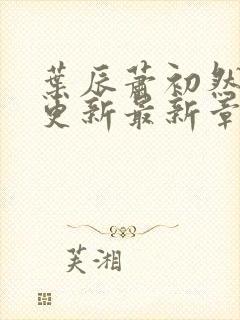 葉辰蕭初然
更新最新章
芙湘